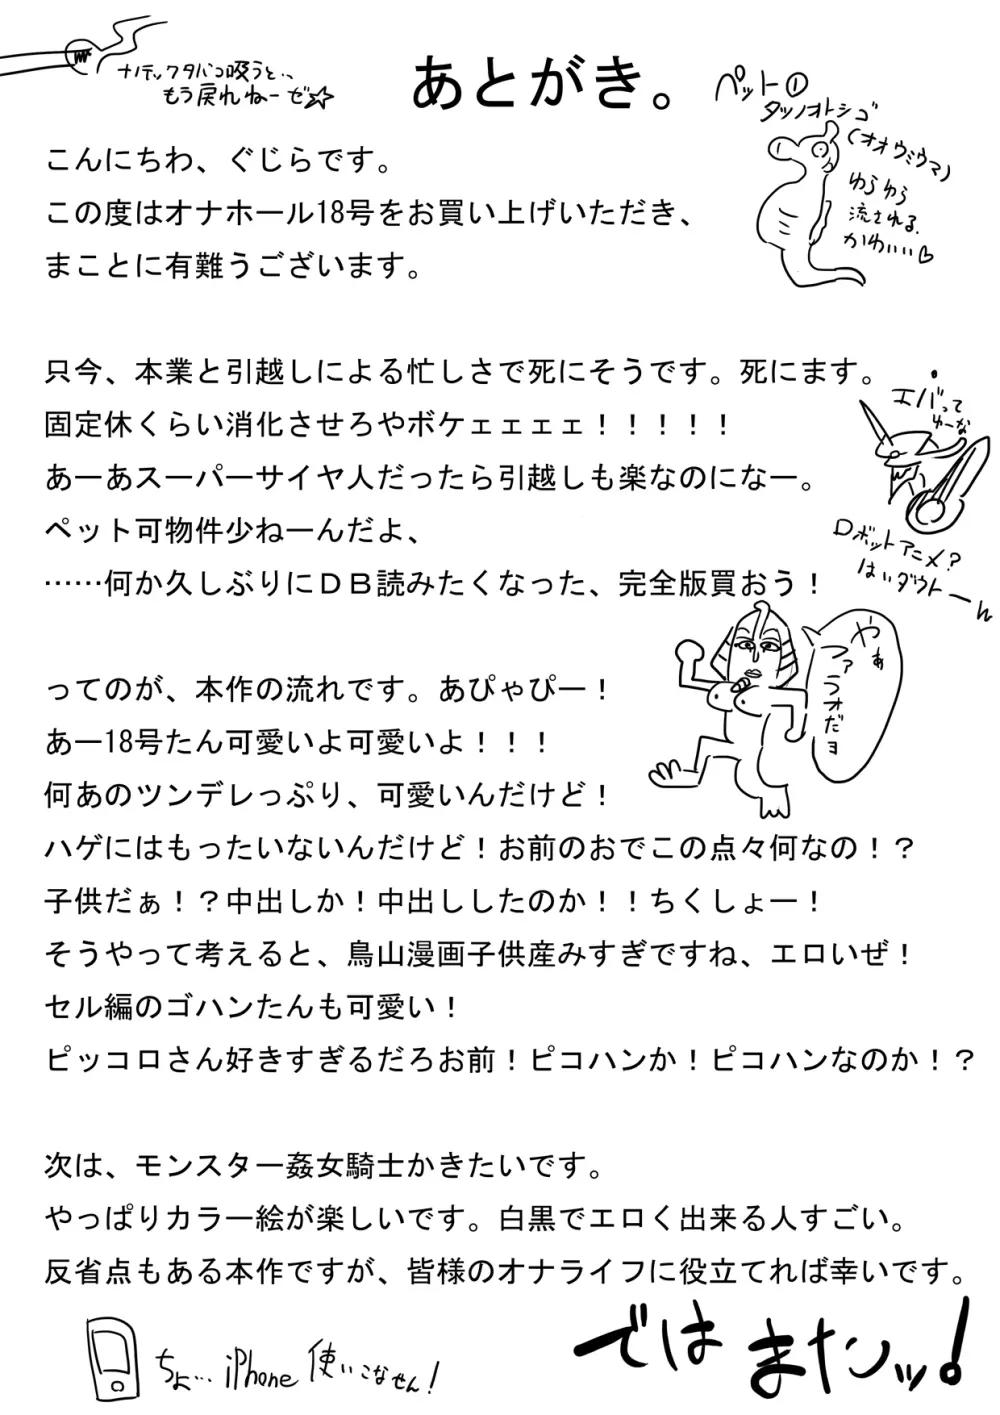 ナノテックタバコ吸うと、、
もう戻れねーぜ☆
あとがき。
ペット①
タツノオトシゴ
(オオウミウマ)
ゆらゆら
流される。
かわいい♡
こんにちわ、ぐじらです。
この度はオナホール18号をお買い上げいただき、
まことに有難うございます。
只今、本業と引越しによる忙しさで死にそうです。死にます。
固定休くらい消化させろやボケェェェェ！！！！！
あーあスーパーサイヤ人だったら引越しも楽なのになー。
ペット可物件少ねーんだよ、
……何か久しぶりにＤＢ読みたくなった、完全版買おう！
エバって
ゆーな
ロボットアニメ?
はいダウトーん
ってのが、本作の流れです。あぴゃぴー！
あー18号たん可愛いよ可愛いよ！！！
何あのツンデレっぷり、可愛いんだけど！
ハゲにはもったいないんだけど！お前のおでこの点々何なの！？
子供だぁ！？中出しか！中出ししたのか！！ちくしょー！
そうやって考えると、鳥山漫画子供産みすぎですね、エロいぜ！
セル編のゴハンたんも可愛い！
ピッコロさん好きすぎるだろお前！ピコハンか！ピコハンなのか！？
やぁ
ファラオだョ
次は、モンスター姦女騎士かきたいです。
やっぱりカラー絵が楽しいです。白黒でエロく出来る人すごい。
反省点もある本作ですが、皆様のオナライフに役立てれば幸いです。
ちょ…iPhone使いこなせん!
ではまたンッ!